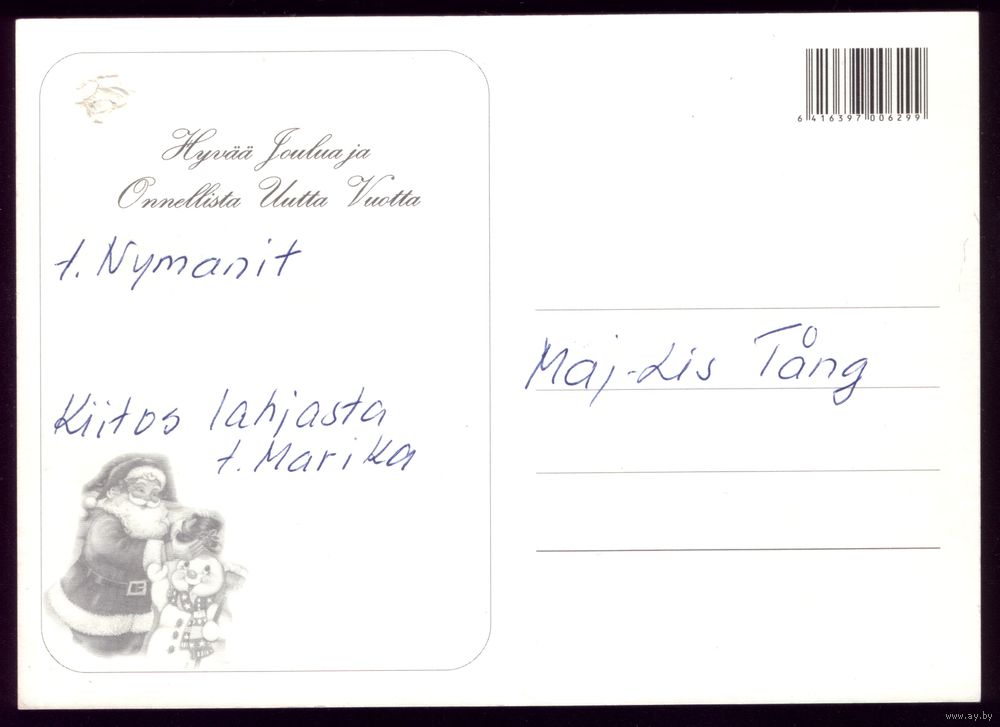 Hyvää Joulua ja
Onnellista Uutta Vuotta
t. Nymanit
Kiitos lahjasta
t. Marika
6 416397 006299
Maj-Lis Tång
www.ay.by